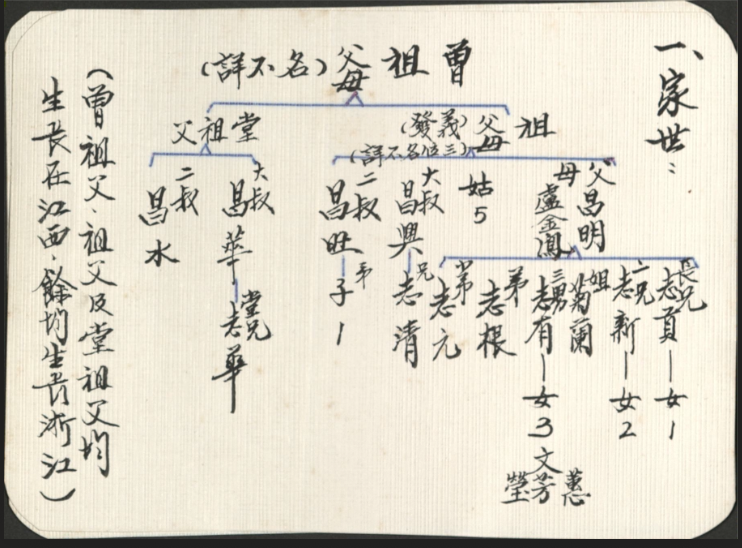 一、家世:
曾祖父母(名不詳)
祖父母(義發)(三位名不詳)
堂祖父
父昌明
母盧金鳳
姑5
大叔昌興—兄志清
二叔昌旺—弟子1
大叔昌華—堂兄志華
二叔昌水
長兄志貢—女1
二兄志新—女2
姐菊蘭
三男志有—女3
蕙
文芳
瑩
弟志根
小弟志元
(曾祖父、祖父及堂祖父均
生長在江西,餘均生長浙江)